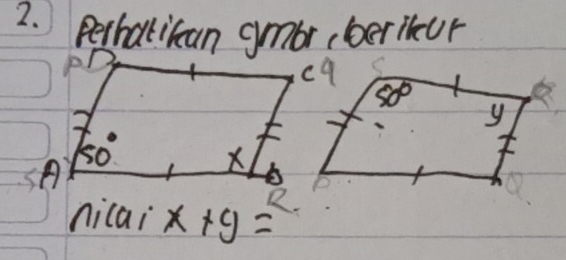 2. Perhatikan gmbr, berikut
D C S R
50° 50° y
A x B P Q
nilai x + y =